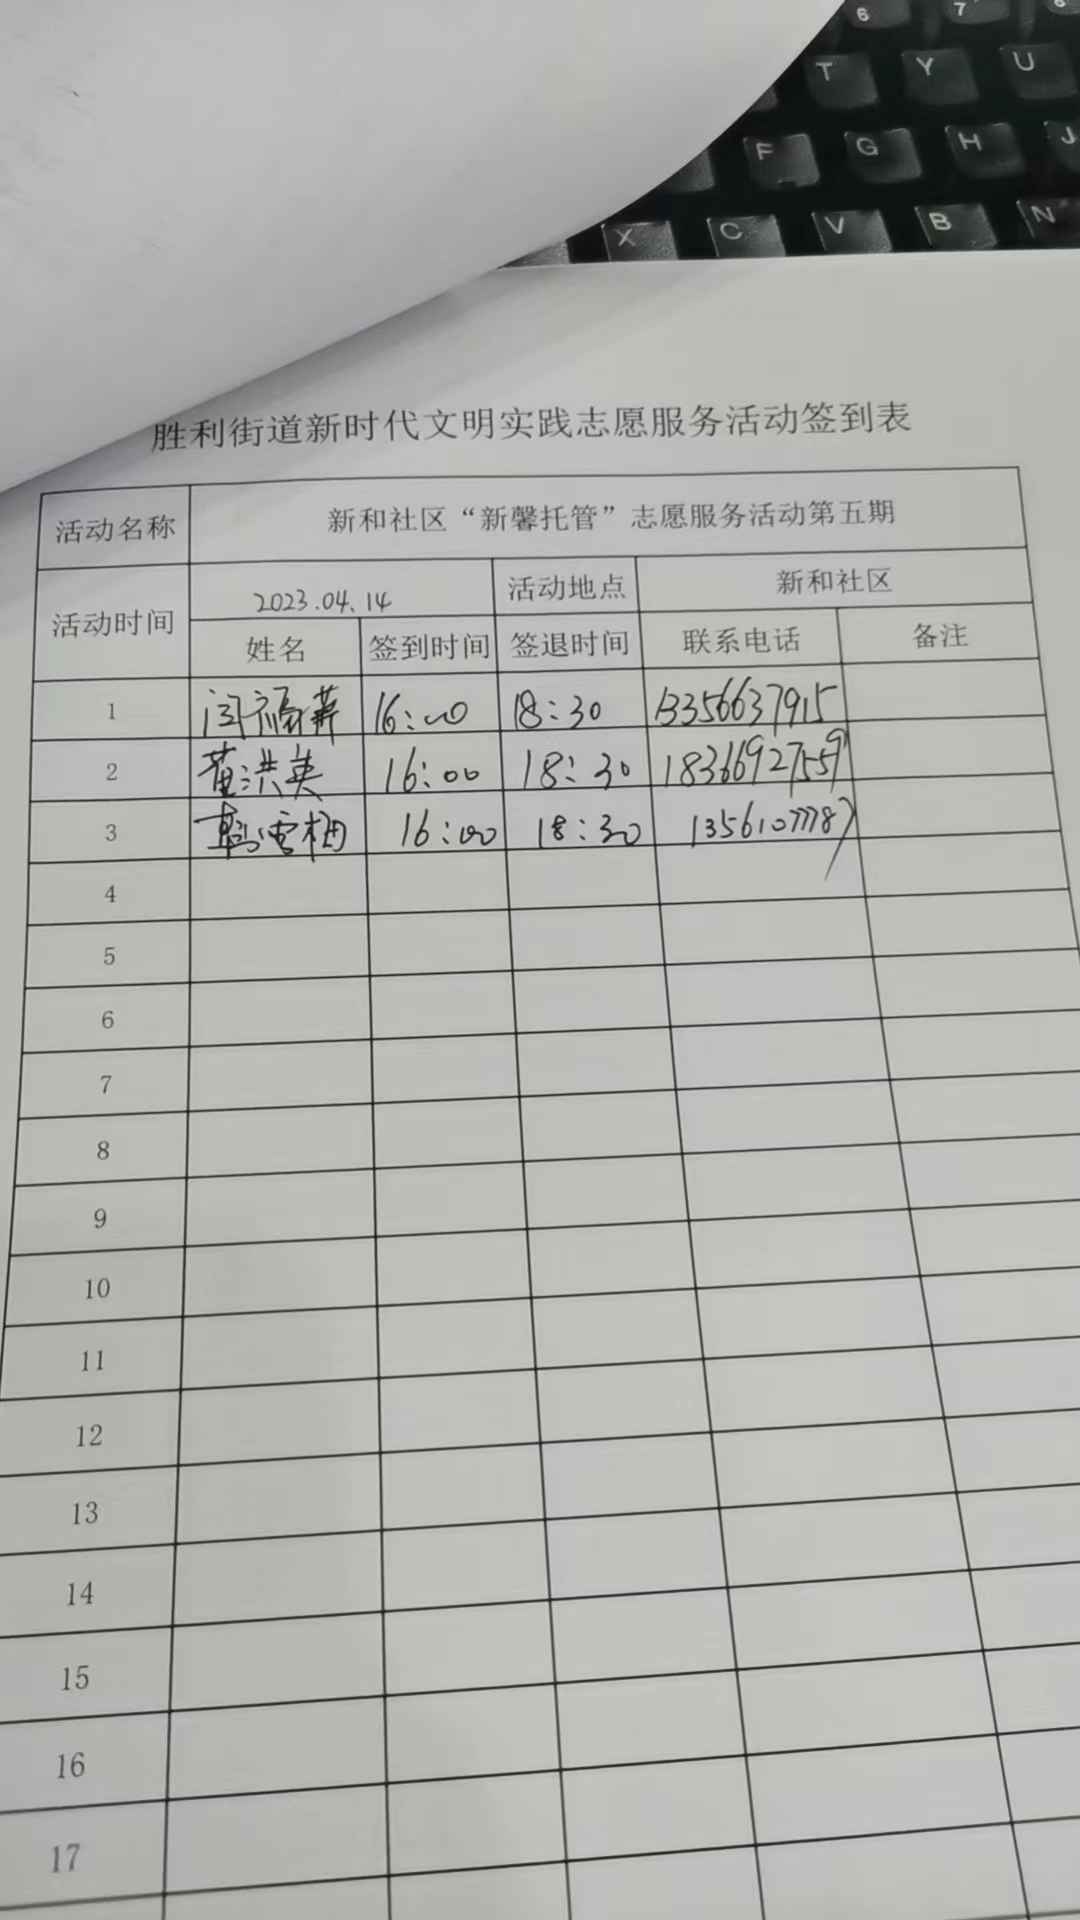 6 7 8
T Y U
F G H J
X C V B N
胜利街道新时代文明实践志愿服务活动签到表
活动名称 新和社区“新馨托管”志愿服务活动第五期
活动时间 2023.04.14 活动地点 新和社区
姓名 签到时间 签退时间 联系电话 备注
1 16:00 18:30 13356637915
2 黄洪英 16:00 18:30 18366927559
3 韩雪梅 16:00 18:30 13561077787
4
5
6
7
8
9
10
11
12
13
14
15
16
17